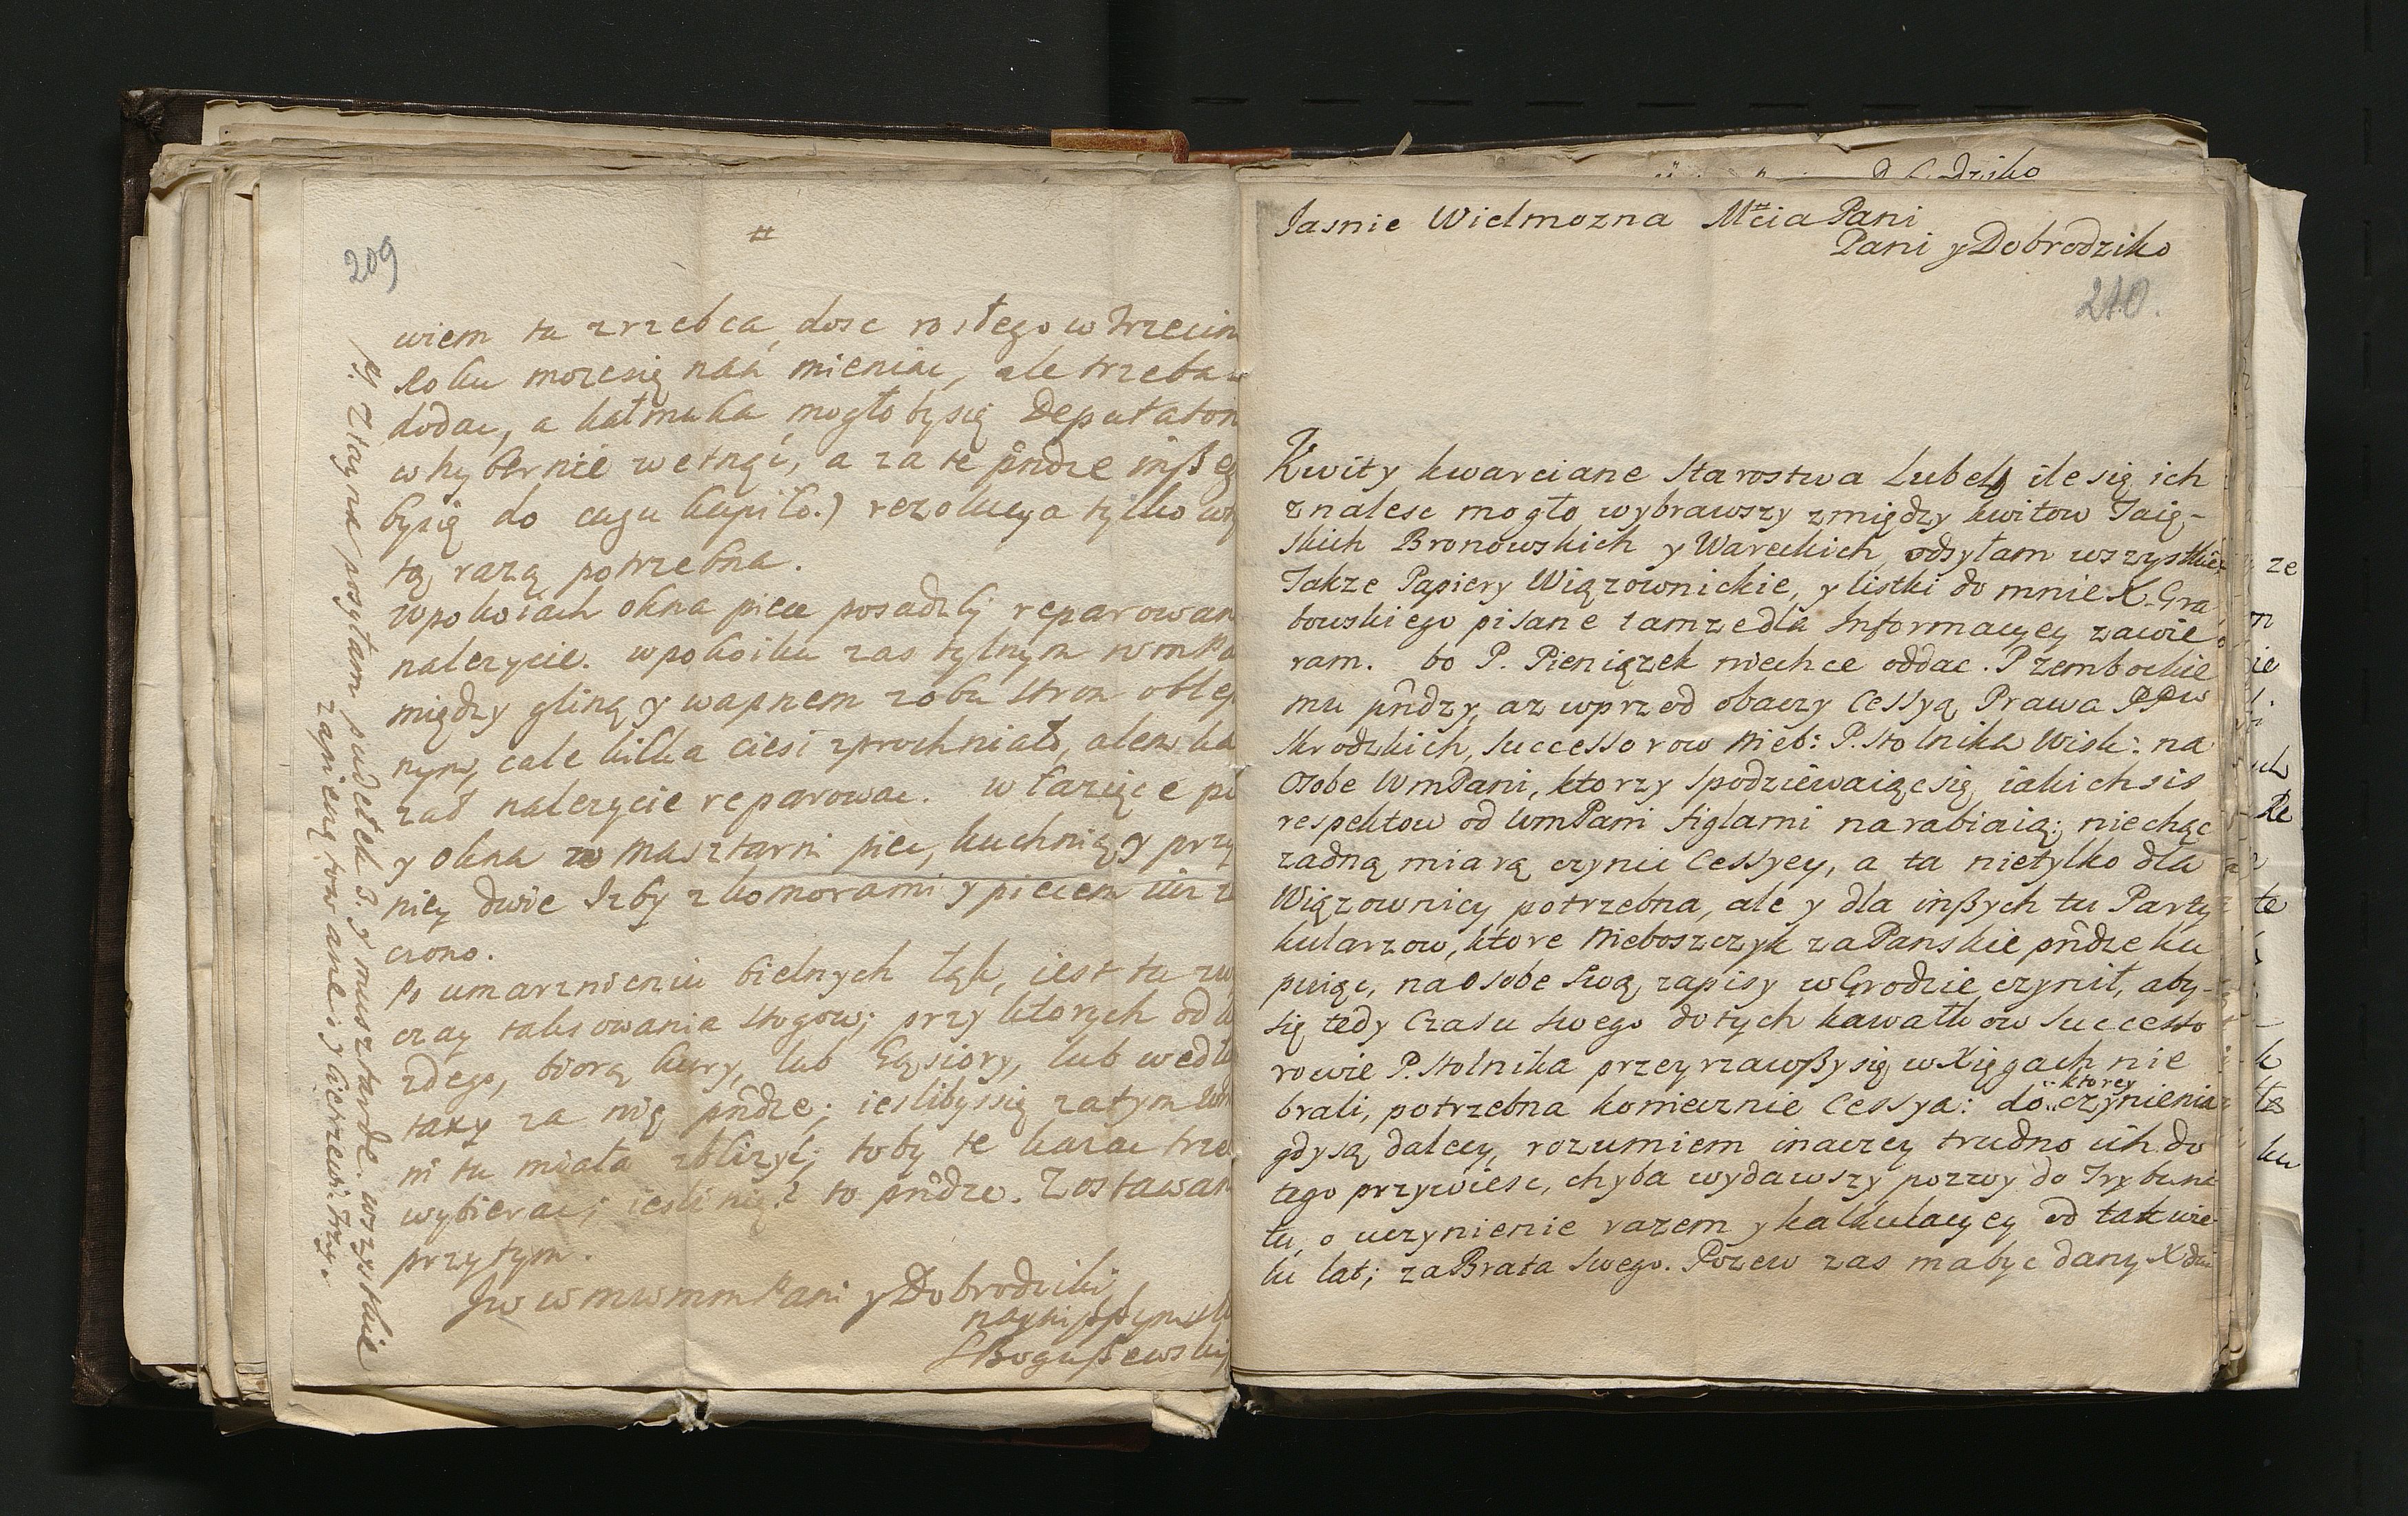 209
#
wiem tu zrzebca dosc rosłego w trzecim
Roku mozesię nań mieniac, ale trzeba
dodac, a kałmuka mogło bysię Deputatom
w hybernie wetnąć, a za te pndze inßeg
bysię do cugu kupiło.) rezolucya tylko
tą razą potrzebna.
wpokoiach okna piece posadzki reparowan
nalezycie. wpokoiku zas tylnym
między gliną y wapnem zobu stron oblep
nym, cale kilka ciesi zprochniało, alem ka
zał nalezycie reparowac. w łazięce pi
y okna w masztarni piec, kuchnią y przy
niey dwie Izby z komorami y piecem iuz
czono.
Po umarznieniu bielnych łąk, iest tu zwy
czay taksowania stogow; przy ktorych od k
zdego, biorą kury, lub gąsiory, lub wedłu
taxy za nię pndze; iesliby się zatym Wm
ni tu miała zblizyć; toby te kazac trze
wybierac; iesli nię? to pndze. Zostawam
przytym.
Jw wmwmm Pani y Dobrodziki
naynizszym sł
SBogußewski
PS Ztąyna posyłam pudełek 3. y musztardę. wszystkie
zapieczętowane; y Cietrzewi trzy.
Jasnie Wielmozna Mcia Pani
Pani y Dobrodziko
210.
Kwity kwarciane Starostwa Lubel ile się ich
znalesc mogło wybrawszy zmiędzy kwitow Taię-
skich Bronowskich y Wareckich, odsyłam wszystkie
Takze Papiery Wiązownickie, y listki do mnie X. Gra
bowskiego pisane tamze dla Informacyey zawie
ram. bo P. Pieniązek niechce oddac. Przembockie
mu pndzy, az wprzod obaczy Cessyą Prawa PPw
Skrodzkich, Successorow Nieb: P. Stolnika Wisk: na
Osobe WmPani, ktorzy Spodziewaiącsię iakichsis
respektow od WmPani figlami narabiaią; niechąc
zadną miarą czynic Cessyey, a ta nietylko dla
Wiązownicy potrzebna, ale y dla inßych tu Party
kularzow, ktore Nieboszczyk zaPanskie pndze ku
puiąc, na Osobe Swą zapisy wGrodzie czynił, aby-
się tedy Czasu Swego do tych kawałkow Successo
rowie P. Stolnika przeyrzawßysię w Xięgach nie
brali, potrzebna koniecznie Cessya: do ktorey czynienia
gdysą dalecy, rozumiem inaczey trudno ich do
tego przywiesc, chyba wydawszy pozwy do Trybuna
tu, o uczynienie razem y kalkulacyey od tak wie
lu lat; zaBrata Swego. Pozew zas mabyc dany X